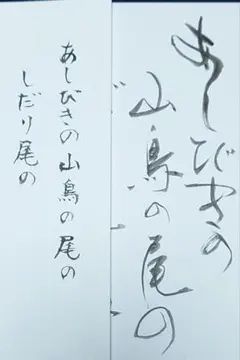 あしびきの
山鳥の尾の
あしびきの山鳥の尾の
しだり尾の